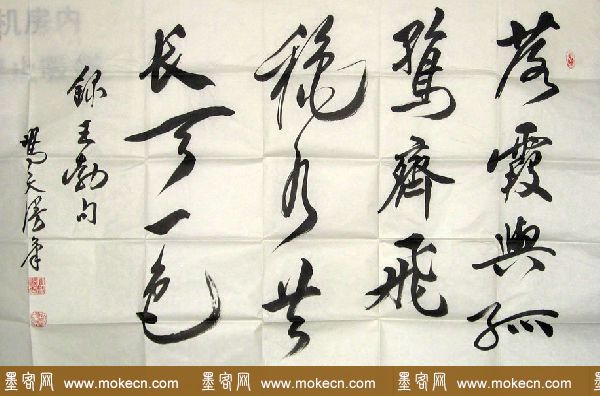 落霞與孤
鶩齊飛
秋水共
長天一色
錄王勃句
墨客网 www.mokecn.com 墨客网 www.mokecn.com 墨客网 www.mokecn.com